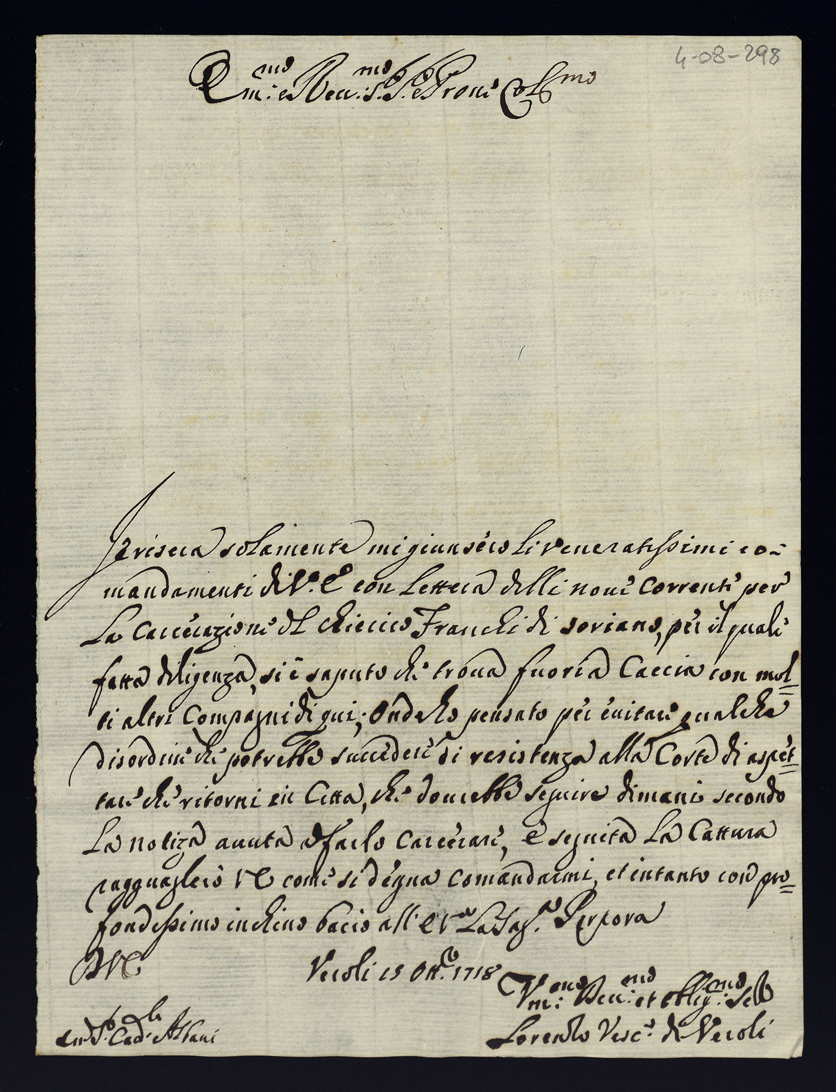 4-08-298
Em.mo e Reu.mo S.re P.rone Col.mo
Jerisera solamente mi giunsero li veneratissimi co-
mandamenti di V.a E.a con lettera delli noue correnti per
la carcerazione del chierico Franchi di Soriano, per il quale
fatta diligenza, si è saputo che troua fuori a Caccia con mol=
ti altri Compagni di qui; Onde ho pensato per euitare qualche
disordine che potrebbe succedere di resistenza alla Corte di aspet=
tare che ritorni in Città, che dourebbe seguire dimani secondo
la notizia auuta di farlo carcerare, e seguita la Cattura
ragguaglerò VE come si degna comandarmi, et intanto con pro=
fondissimo inchino bacio all' E V.ra la Sag.ra Porpora
D VE
Veroli 15 Ott.e 1718
Vm.mo Deu.mo et obblig.mo Se.
Lorenzo Vesc.o di Veroli
Em.o S.r Card.le Albani